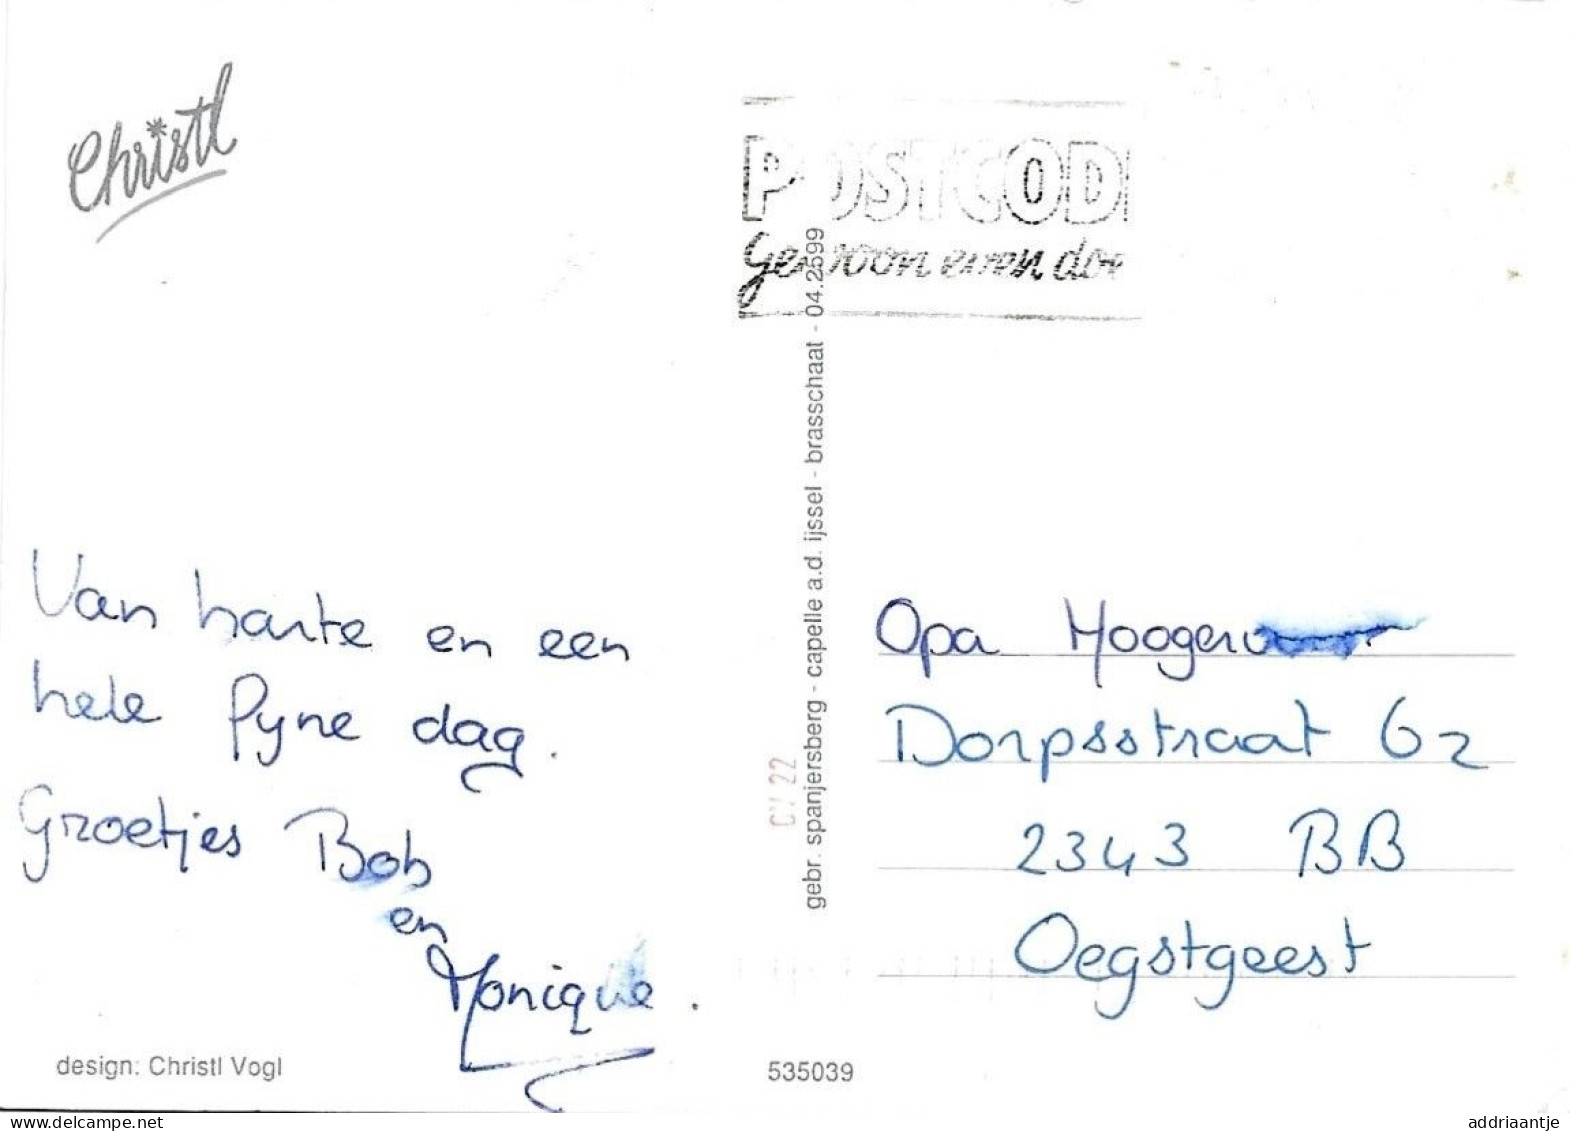 Christl
POSTCOD
Gewoon even doe
Van harte en een
hele fyne dag.
Groetjes Bob
en
Monique.
design: Christl Vogl
gebr. spanjersberg - capelle a.d. ijssel - brasschaat - 04.2599
CV 22
535039
Opa
Dorpsstraat 62
2343 BB
Oegstgeest
www.delcampe.net
addriaantje